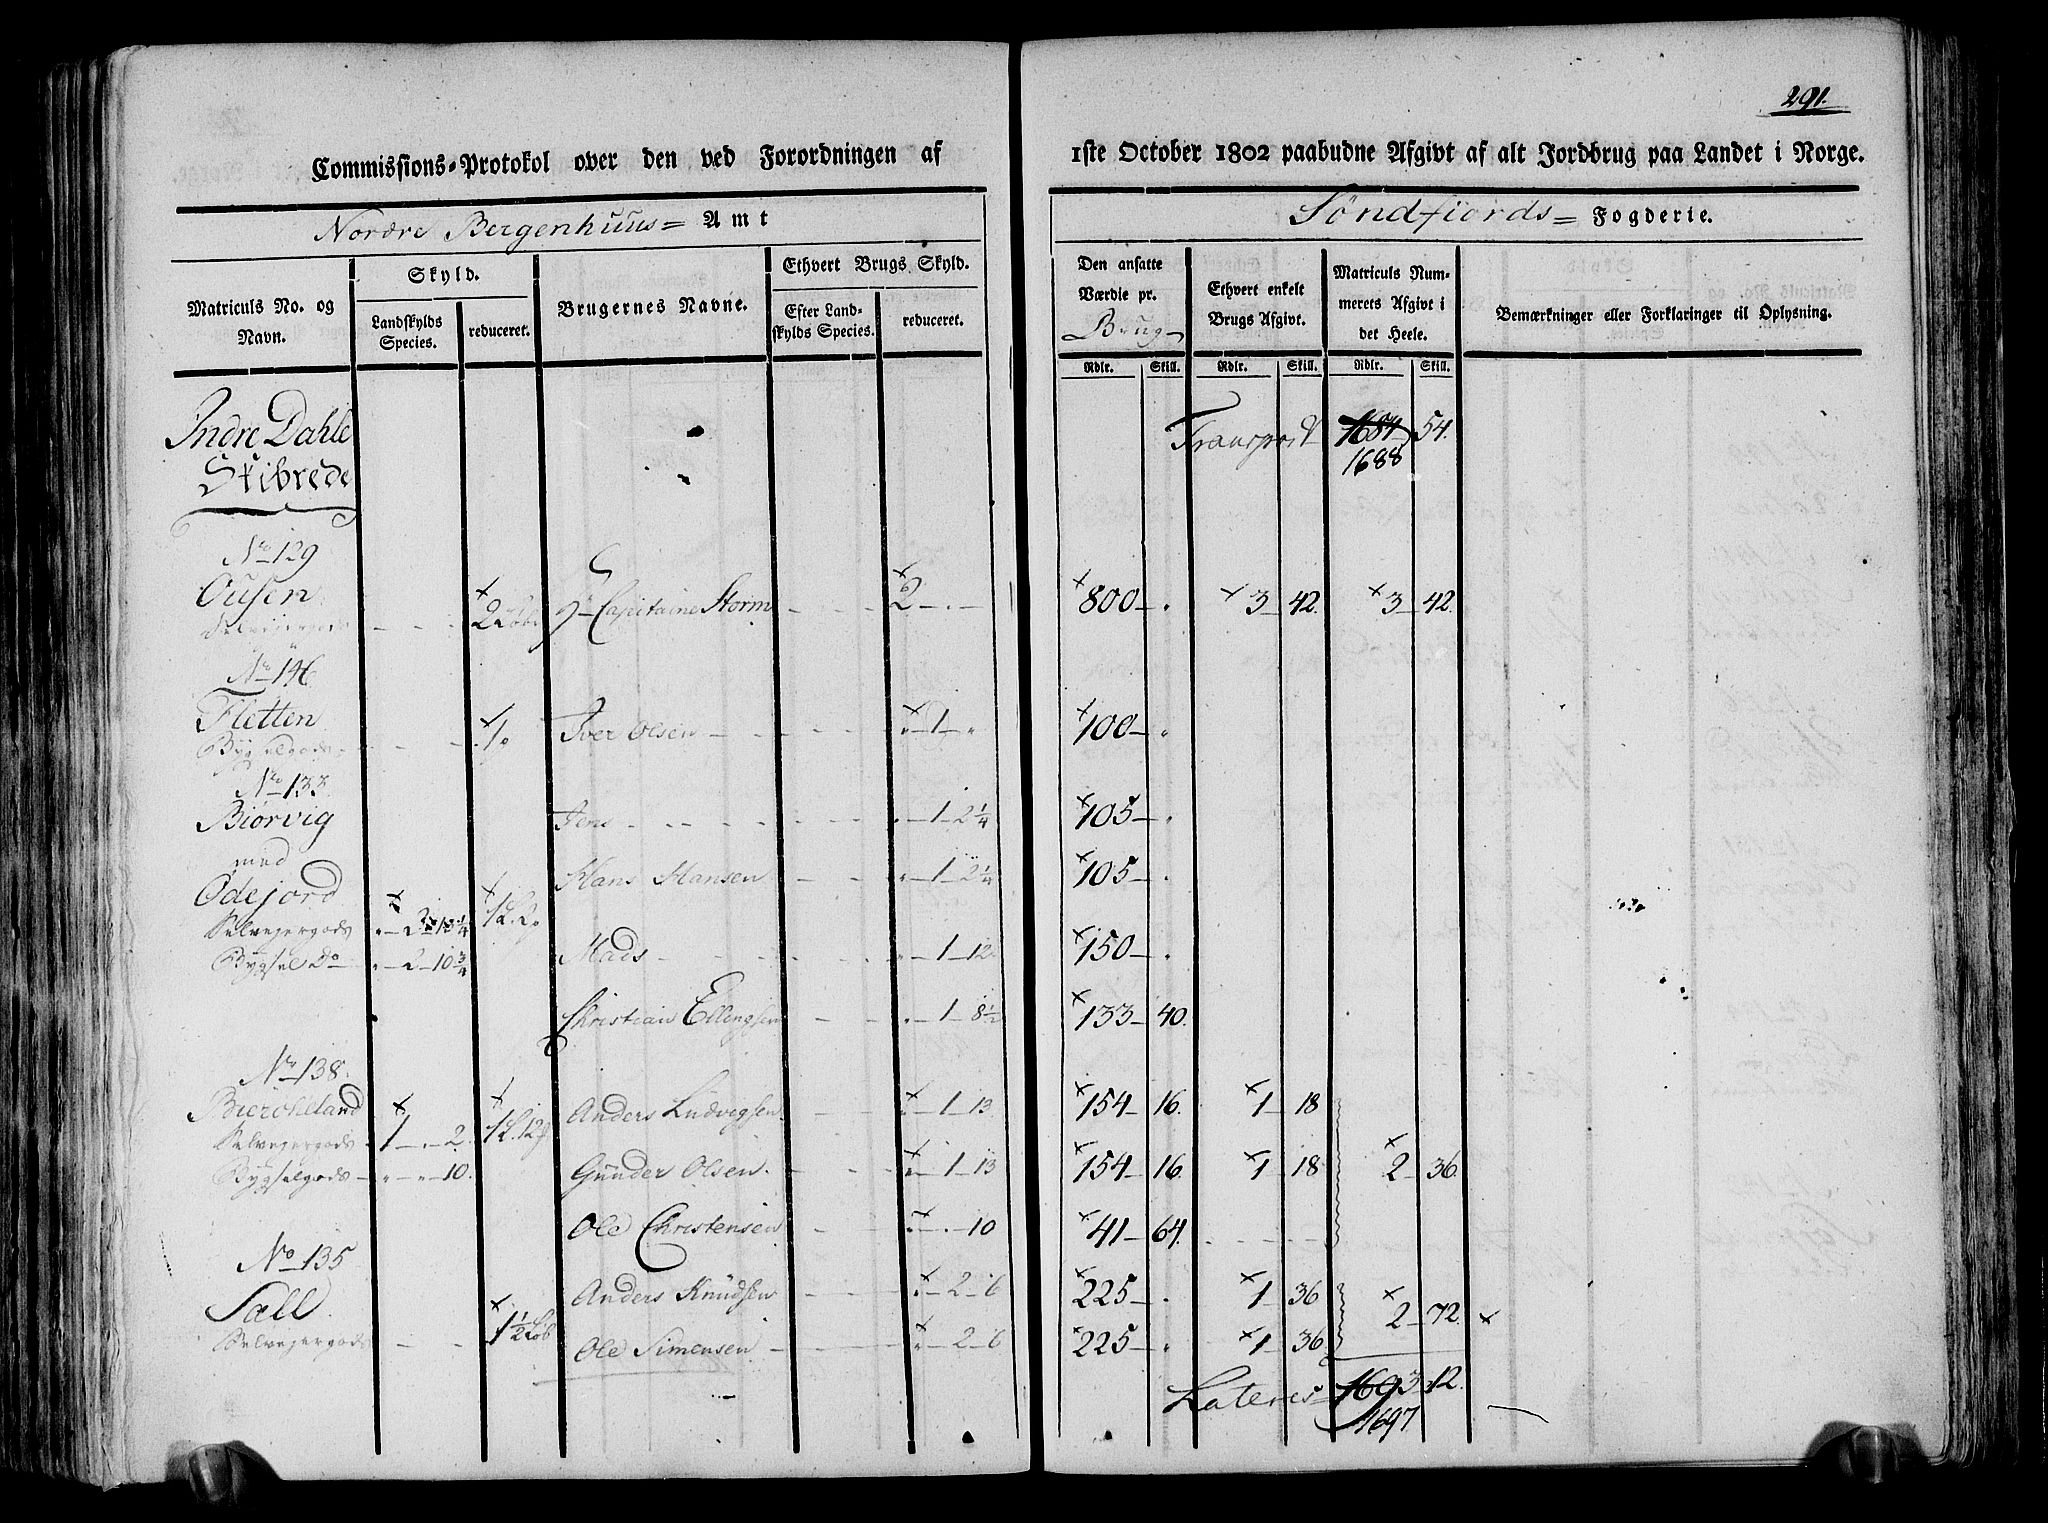 291.
Commissions-Protokol over den ved Forordningen af 1ste October 1802 paabudne Afgivt af alt Jordbrug paa Landet i Norge.
Nordre Bergenhuus= Amt
Søndfiords= Fogderie.
Matriculs No. og Navn.
Skyld.
Landskylds Species.
reduceret.
Brugernes Navne.
Ethvert Brugs Skyld.
Efter Landskylds Species.
reduceret.
Den ansatte Værdie pr. Brug
Ethvert enkelt Brugs Afgivt.
Matriculs Nummerets Afgivt i det Heele.
Bemærkninger eller Forklaringer til Oplysning.
Rdlr. Skill. Rdlr. Skill. Rdlr. Skill.
Indre Dahle
Skibrede
Transport 1684 54.
1688
No 129
Ousen 2 Løb Hr Capitaine Storm 2 - . - 800 - . 3 42. 3 42.
Selveiergods
No 146
Fletten Iver Olsen " 1 - " 100 - .
Bygselgods
No 133
Biørvig Jens " 1 - 2 1/4 105 - .
med
Ødejord Hans Hansen " 1 - 2 1/4 105 - .
Selvejergods
Bygsel Do " - 2 - 10 3/4 Mads " 1 - 12 150 - .
Christian Ellingsen " 1 - 8 1/2 133 - 40.
No 138.
Biercheland Anders Ludvigsen " 1 - 13 154 - 16. 1 18
Selvejergods 1 - . - 2.
Bygselgods " - " - 10. Gunder Olsen " 1 - 13 154 - 16. 1 18 2 36.
Ole Christensen " - . - 10 41 - 64.
No 135
Sæll Anders Knudsen " - 2 - 6 225 - . 1 36 2 72.
Selvejergods 1 1/2 Løb Ole Simensen " - 2 - 6 225 - . 1 36
Lateres 1693 12.
1697